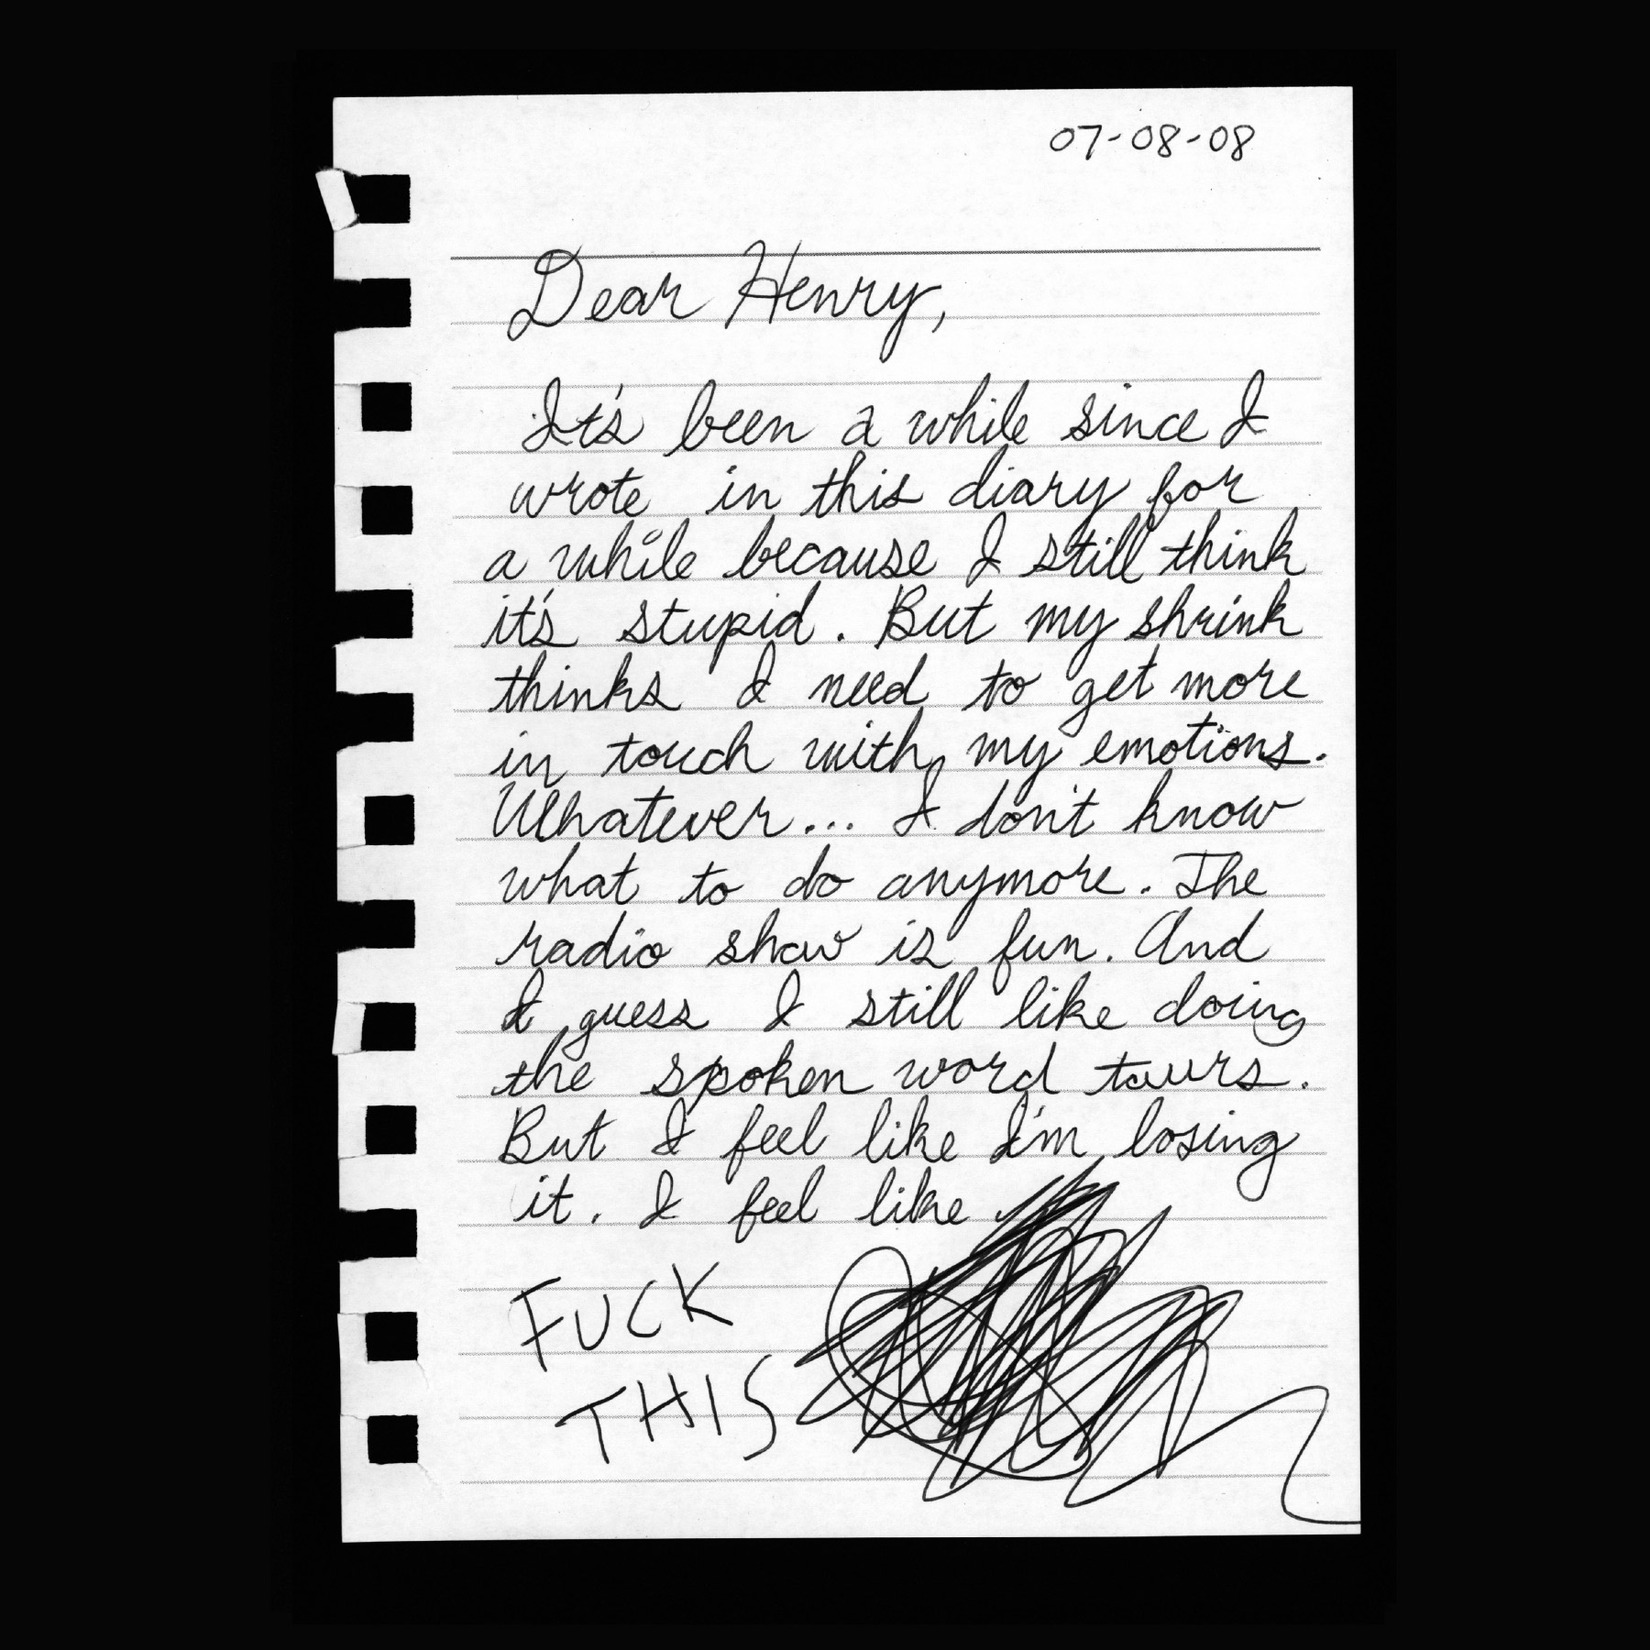 07-08-08
Dear Henry,
It's been a while since I
wrote in this diary for
a while because I still think
it's stupid. But my shrink
thinks I need to get more
in touch with my emotions.
Whatever... I don't know
what to do anymore. The
radio show is fun. And
I guess I still like doing
the spoken word tours.
But I feel like I'm losing
it. I feel like
FUCK
THIS